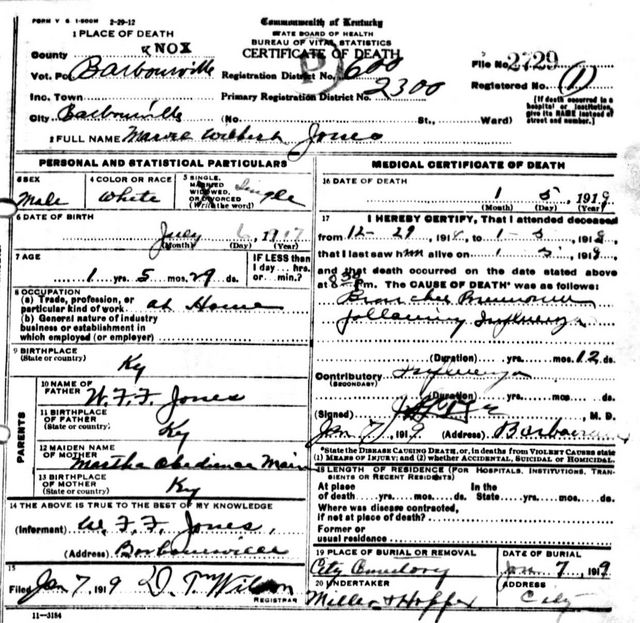 FORM V. S. 1-500M 2-29-12
Commonwealth of Kentucky
STATE BOARD OF HEALTH
BUREAU OF VITAL STATISTICS
CERTIFICATE OF DEATH
1 PLACE OF DEATH
County KNOX
Vot. Pct Barbourville
Inc. Town
City Barbourville
Registration District No. 600
Primary Registration District No. 2300
File No. 2729
Registered No. (1)
(No. St., Ward)
[If death occurred in a hospital or institution, give its NAME instead of street and number.]
2 FULL NAME Wilbert Jones
PERSONAL AND STATISTICAL PARTICULARS
3 SEX Male
4 COLOR OR RACE White
5 SINGLE, MARRIED, WIDOWED, OR DIVORCED (Write the word) Single
6 DATE OF BIRTH
July 1917
(Month) (Day) (Year)
7 AGE
1 yrs. 5 mos. 29 ds.
IF LESS than 1 day---hrs. or min.?
8 OCCUPATION
(a) Trade, profession, or particular kind of work at Home
(b) General nature of industry business or establishment in which employed (or employer)
9 BIRTHPLACE
(State or country) Ky
PARENTS
10 NAME OF FATHER W. F. F. Jones
11 BIRTHPLACE OF FATHER
(State or country) Ky
12 MAIDEN NAME OF MOTHER Martha Obedience Main
13 BIRTHPLACE OF MOTHER
(State or Country) Ky
14 THE ABOVE IS TRUE TO THE BEST OF MY KNOWLEDGE
(Informant) W. F. F. Jones,
(Address) Barbourville
15
Filed Jan 7, 1919 D. T. Wilson
REGISTRAR
11-3184
MEDICAL CERTIFICATE OF DEATH
16 DATE OF DEATH
1 5, 1919
(Month) (Day) (Year)
17 I HEREBY CERTIFY, That I attended deceased
from 12-29, 1918, to 1-5, 1918,
that I last saw him alive on 1-5, 1918,
and that death occurred on the date stated above
at 8 30 P.m. The CAUSE OF DEATH* was as follows:
Pneumonia
following Influenza
(Duration) yrs. mos. 12 ds.
Contributory Influenza
(SECONDARY)
(Duration) yrs. mos. ds.
(Signed) M. D.
Jan 7, 1919 (Address) Barbourville
*State the DISEASE CAUSING DEATH, or, in deaths from VIOLENT CAUSES state (1) MEANS OF INJURY; and (2) whether ACCIDENTAL, SUICIDAL OR HOMICIDAL.
18 LENGTH OF RESIDENCE (FOR HOSPITALS, INSTITUTIONS, TRANSIENTS OR RECENT RESIDENTS)
At place of death yrs. mos. ds. In the State yrs. mos. ds.
Where was disease contracted, if not at place of death?
Former or usual residence
19 PLACE OF BURIAL OR REMOVAL
City Cemetery
DATE OF BURIAL
Jan 7, 1919
20 UNDERTAKER
Miller & Hopper
ADDRESS
City